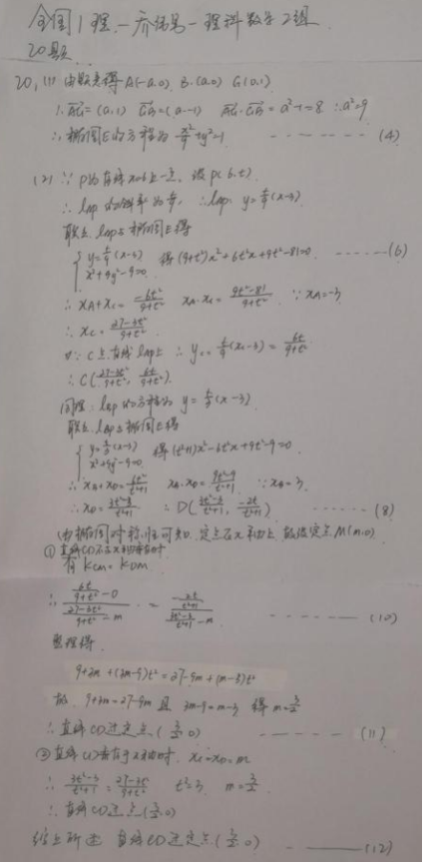 全国1理
理科数学2组
20题
20. (1) 由题意得 A(-a,0) B(a,0) G(0,1)
∴ AG=(a,1) GB=(a,-1) AG·GB=a²-1=8 ∴a²=9
∴椭圆E的方程为 x²/9+y²=1 ------ (4)
(2) ∵ P为直线x=6上一点, 设P(6,t)
的斜率为 t/9,
联立 与椭圆E得
x²+9y²-9=0 得(9+t²)x²+6t²x+9t²-81=0 ------ (6)
∴ xA+xC=-6t²/(9+t²) xA·xC=(9t²-81)/(9+t²) ∵ xA=-3
∴ xC=(27-3t²)/(9+t²)
又∵ C在直线 上 ∴ =6t/(9+t²)
∴ C((27-3t²)/(9+t²), 6t/(9+t²))
同理: 的方程为 y=t/3(x-3)
联立 与椭圆E得
y=t/3(x-3)
x²+9y²-9=0 得(t²+1)x²-6t²x+9t²-9=0
∴ xB+xD=6t²/(t²+1) xB·xD=(9t²-9)/(t²+1) ∵ xB=3
∴ xD=(3t²-3)/(t²+1) ∴ D((3t²-3)/(t²+1), -2t/(t²+1)) ------ (8)
由椭圆对称性可知,定点在x轴上 故设定点M(m,0)
① 直线CD不 x轴 时
有 kCM=kDM
∴ (6t/(9+t²)-0)/((27-3t²)/(9+t²)-m) = (-2t/(t²+1))/((3t²-3)/(t²+1)-m) ------ (10)
整理得
9+3m=27-9m 且 得 m=3/2
∴ 直线CD过定点(3/2,0) ------ (11)
② 直线CD垂直于x轴时, xC=xD=m
∴ (3t²-3)/(t²+1)=(27-3t²)/(9+t²) t²=3 m=3/2
∴ 直线CD过定点(3/2,0)
综上所述 直线CD过定点(3/2,0) ------ (12)